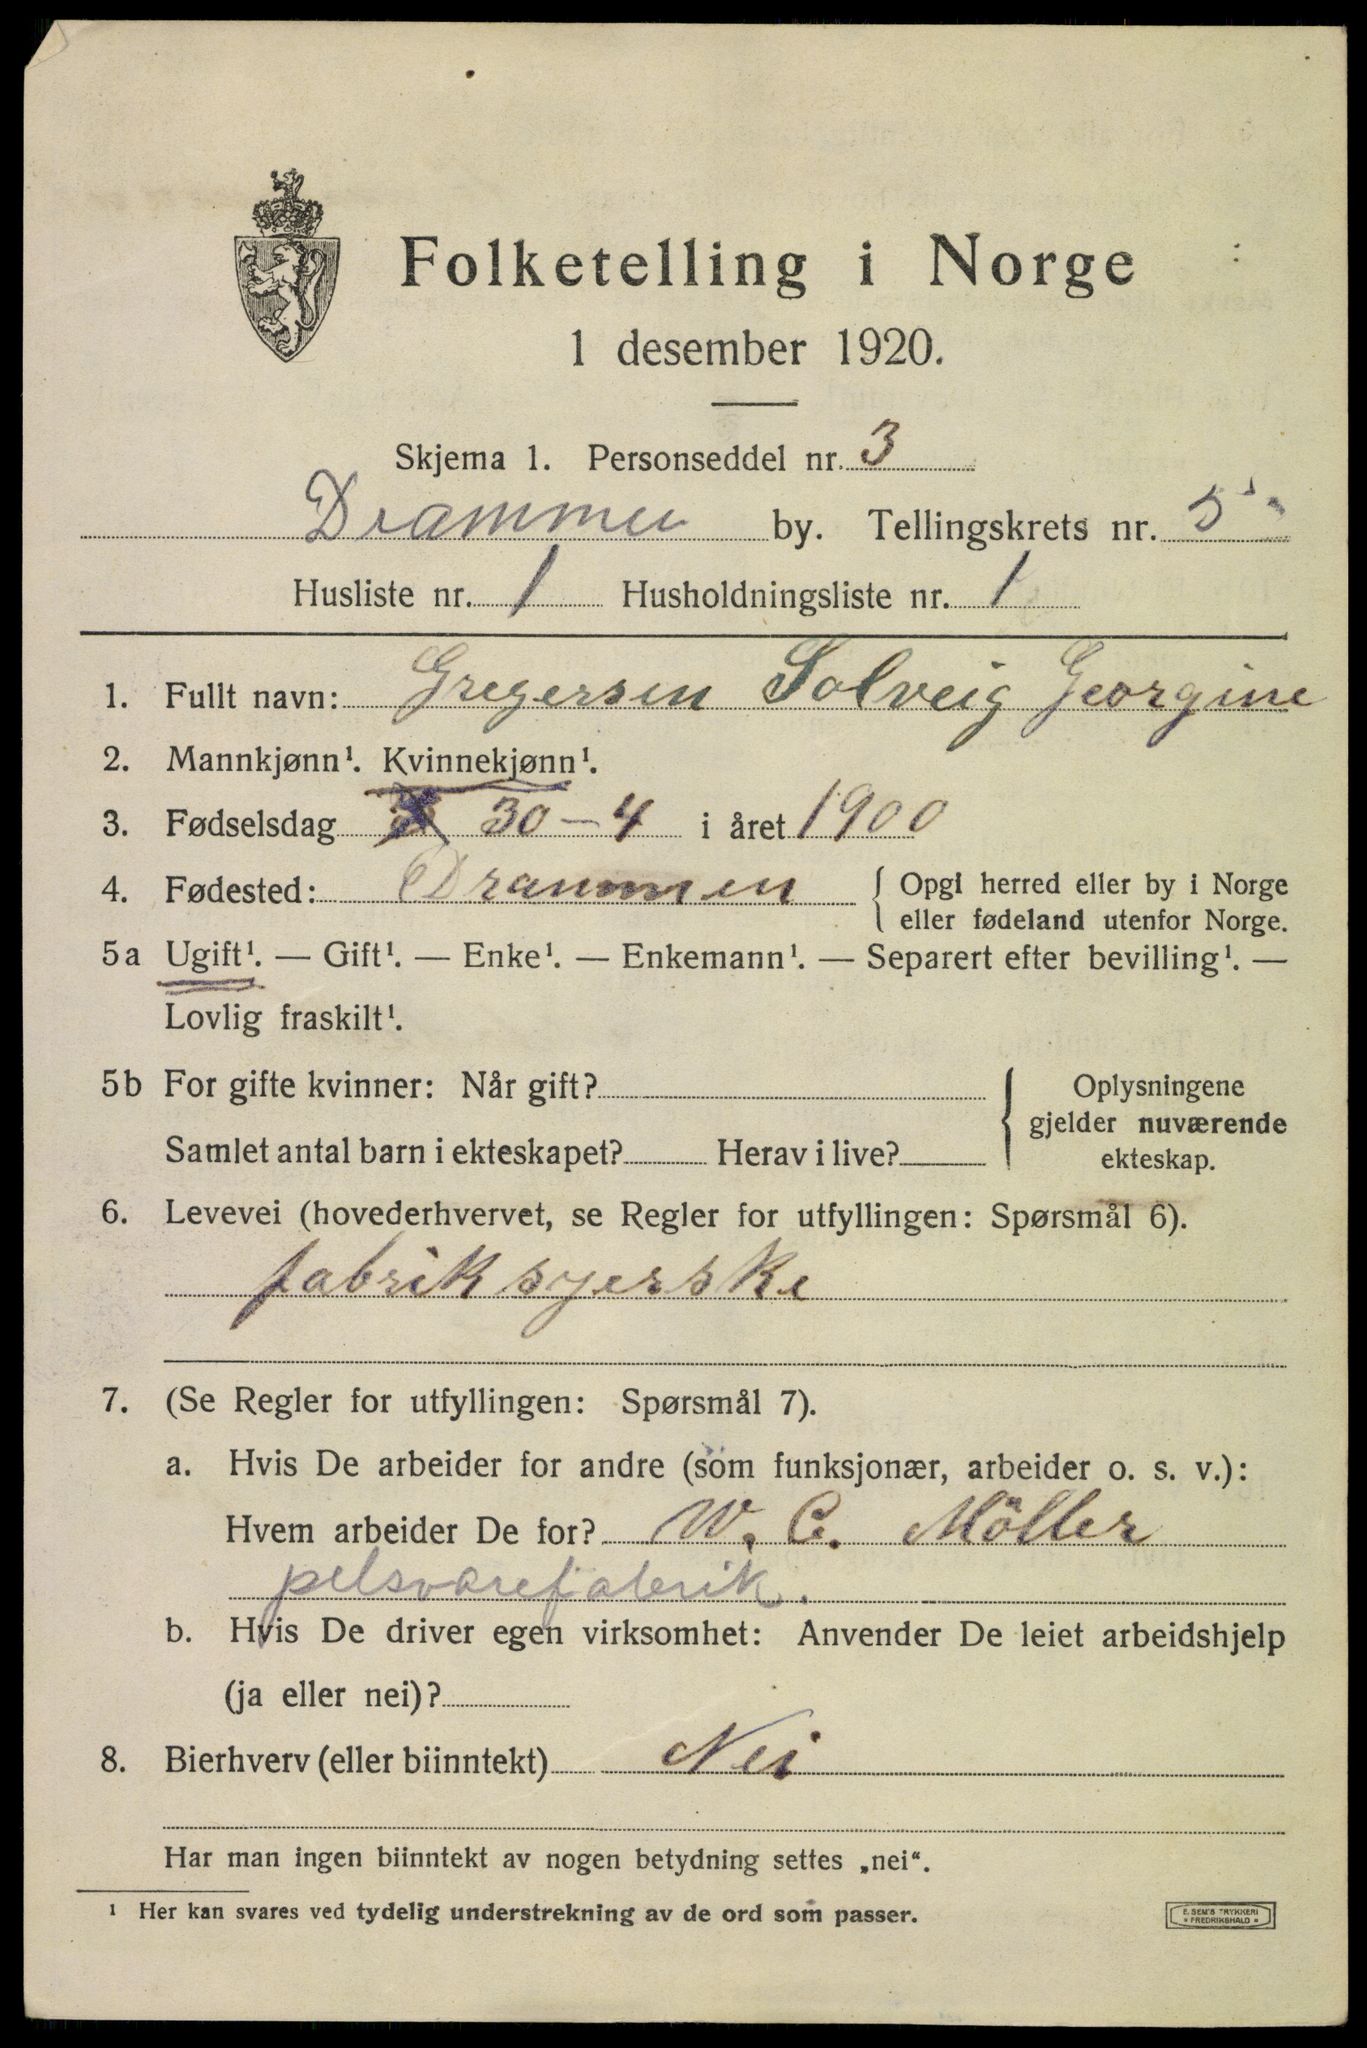 Folketelling i Norge
1 desember 1920.
Skjema 1. Personseddel nr. 3
Drammen by. Tellingskrets nr. 5
Husliste nr. 1 Husholdningsliste nr. 1
1. Fullt navn: Gregersen Solveig Georgine
2. Mannkjønn¹. Kvinnekjønn¹.
3. Fødselsdag 30-4 i året 1900
4. Fødested: Drammen { Opgi herred eller by i Norge
eller fødeland utenfor Norge.
5a Ugift¹. — Gift¹. — Enke¹. — Enkemann¹. — Separert efter bevilling¹. —
Lovlig fraskilt¹.
5b For gifte kvinner: Når gift? { Oplysningene
gjelder nuværende
Samlet antal barn i ekteskapet? Herav i live? ekteskap.
6. Levevei (hovederhvervet, se Regler for utfyllingen: Spørsmål 6).
fabriksyerske
7. (Se Regler for utfyllingen: Spørsmål 7).
a. Hvis De arbeider for andre (som funksjonær, arbeider o. s. v.):
Hvem arbeider De for? W. C. Möller
pelsvarefabrik.
b. Hvis De driver egen virksomhet: Anvender De leiet arbeidshjelp
(ja eller nei)?
8. Bierhverv (eller biinntekt) Nei
Har man ingen biinntekt av nogen betydning settes „nei“.
¹ Her kan svares ved tydelig understrekning av de ord som passer.
E. SEM'S TRYKKERI
* FREDRIKSHALD *